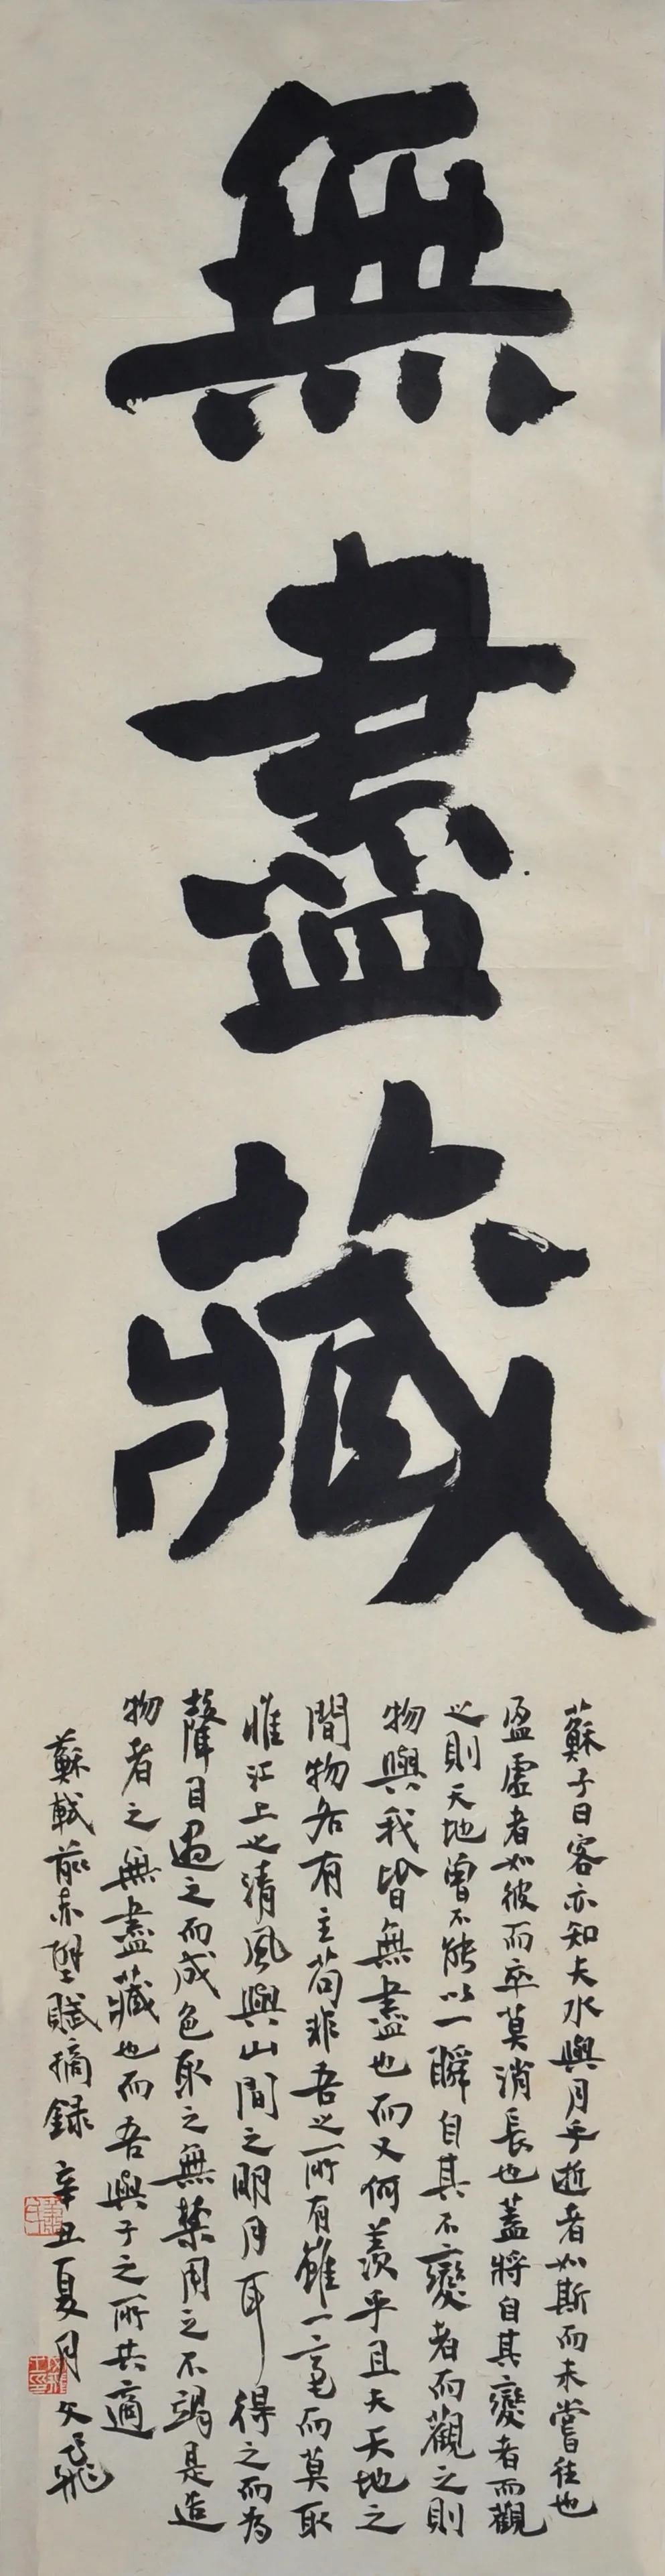 無盡藏
蘇子曰客亦知夫水與月乎逝者如斯而未嘗往也
盈虛者如彼而卒莫消長也蓋將自其變者而觀
之則天地曾不能以一瞬自其不變者而觀之則
物與我皆無盡也而又何羨乎且夫天地之
間物各有主苟非吾之所有雖一毫而莫取
惟江上之清風與山間之明月耳得之而為
聲目遇之而成色取之無禁用之不竭是造
物者之無盡藏也而吾與子之所共適
蘇軾前赤壁賦摘錄 辛丑夏月文飛